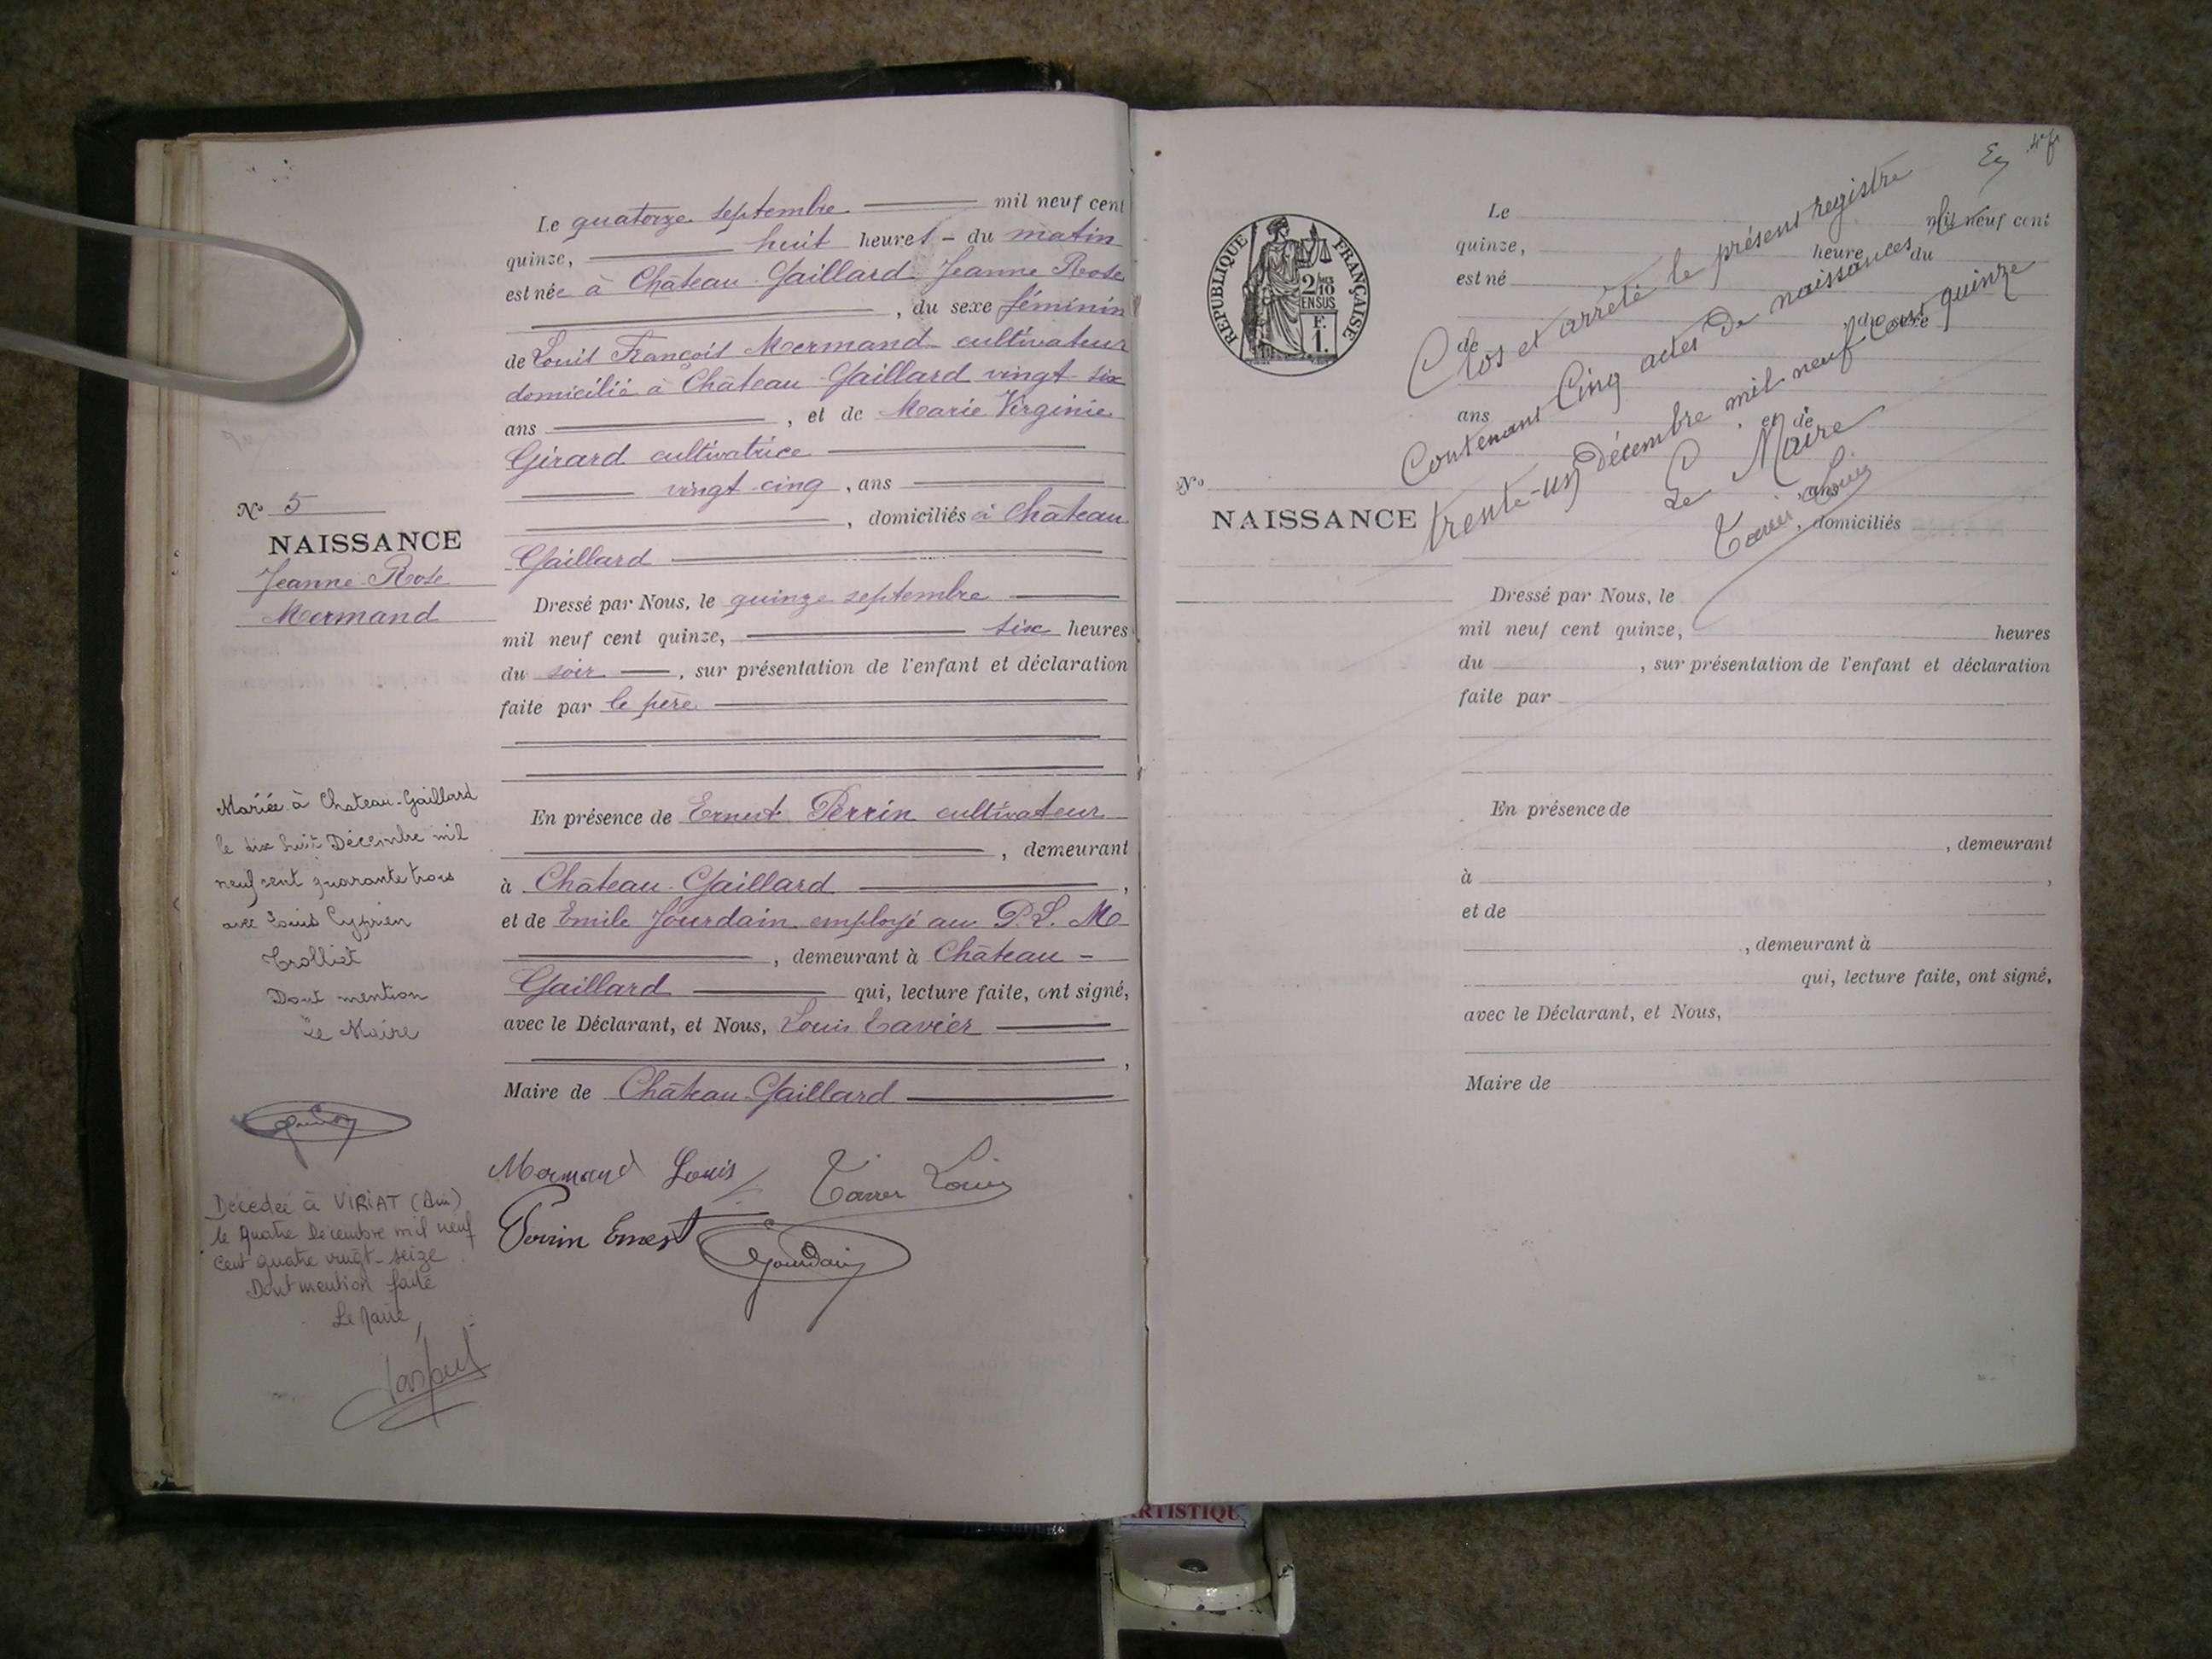 Le quatorze septembre mil neuf cent
quinze, huit heures - du matin
est née à Château-Gaillard Jeanne Rose
, du sexe féminin
de Louis François Mermand cultivateur
domicilié à Château-Gaillard vingt-six
ans , et de Marie Virginie
Girard cultivatrice
vingt-cinq , ans
, domiciliés à Château
Gaillard
Dressé par Nous, le quinze septembre
mil neuf cent quinze, six heures
du soir , sur présentation de l'enfant et déclaration
faite par le père
En présence de Ernest Perrin cultivateur
, demeurant
à Château-Gaillard ,
et de Emile Jourdain employé au P. L. M
, demeurant à Château -
Gaillard qui, lecture faite, ont signé,
avec le Déclarant, et Nous, Louis Tavier
,
Maire de Château-Gaillard
Mermand Louis Tavier Louis
Perrin Ernest Jourdain
No 5
NAISSANCE
Jeanne-Rose
Mermand
Mariée à Chateau-Gaillard
le dix huit Décembre mil
neuf cent quarante trois
avec Louis Cyprien
Trolliet
Dont mention
Le Maire
Décédée à VIRIAT (Ain)
le quatre décembre mil neuf
cent quatre vingt-seize
Dont mention faite
Le Maire,
RÉPUBLIQUE FRANÇAISE
2/10
EN SUS
F.
1.
No
NAISSANCE
Le mil neuf cent
quinze, heure du
est né
, du sexe
de
ans , et de
, ans
, domiciliés
Dressé par Nous, le
mil neuf cent quinze, heures
du , sur présentation de l'enfant et déclaration
faite par
En présence de
, demeurant
à ,
et de
, demeurant à
qui, lecture faite, ont signé,
avec le Déclarant, et Nous,
Maire de
Clos et arrêté le présent registre
Contenant Cinq actes de naissances, le
trente-un décembre mil neuf cent quinze
Le Maire
Tavier Louis
ARTISTIQU